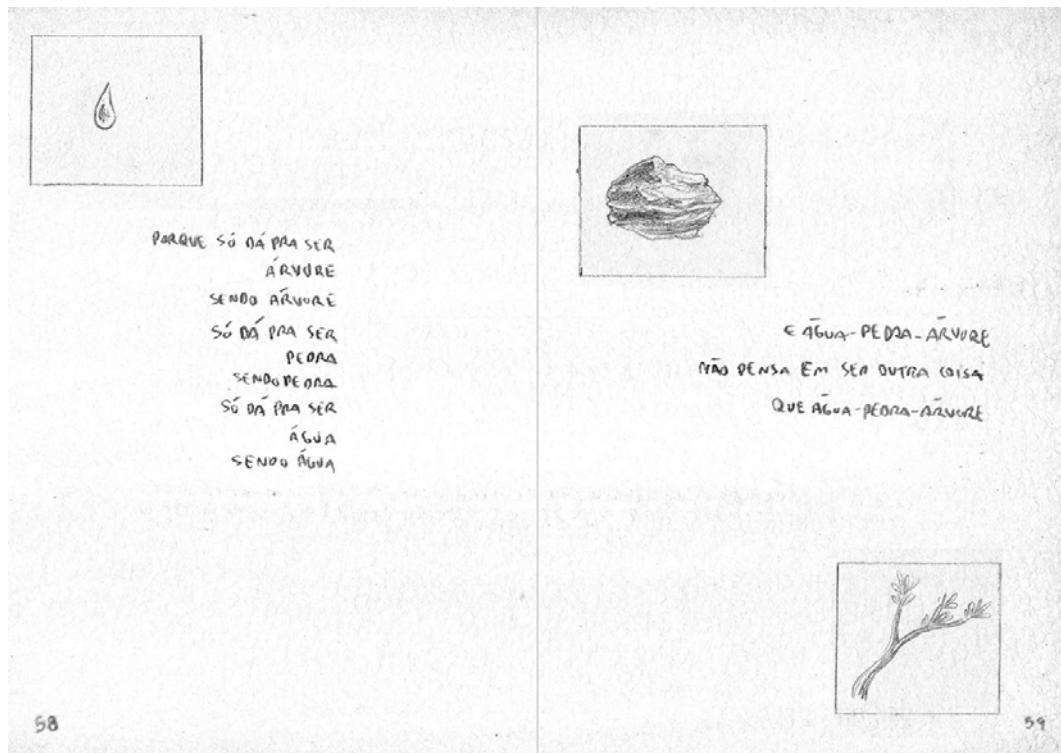 PORQUE SÓ DÁ PRA SER
ÁRVORE
SENDO ÁRVORE
SÓ DÁ PRA SER
PEDRA
SENDO PEDRA
SÓ DÁ PRA SER
ÁGUA
SENDO ÁGUA
58
E ÁGUA-PEDRA-ÁRVORE
NÃO PENSA EM SER OUTRA COISA
QUE ÁGUA-PEDRA-ÁRVORE
59